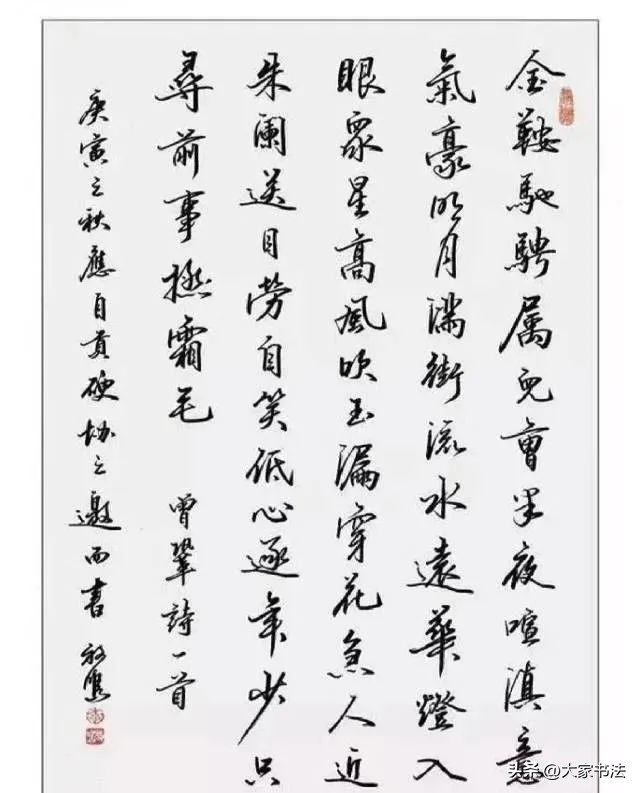 金鞍馳騁属兒曹半夜喧滇意
氣豪明月滿街流水遠華燈入
眼眾星高風吹玉漏穿花急人近
朱闌送目勞自笑低心逐年少只
尋前事撚霜毛 曾鞏詩一首
庚寅之秋應自貢硬协之邀而書
头条 @大家书法